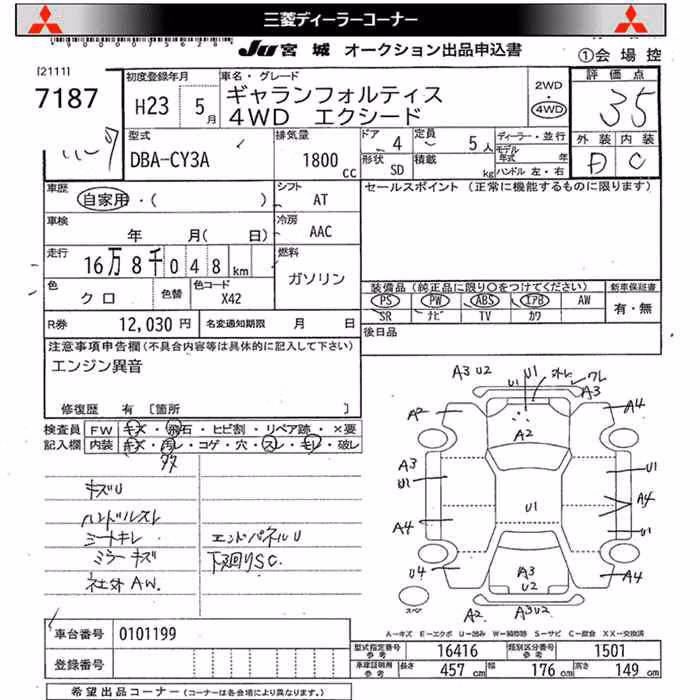 三菱ディーラーコーナー
JU 宮城 オークション出品申込書
①会場控
[2111]
7187
初度登録年月
H23 5月
車名・グレード
ギャランフォルティス
4WD エクシード
2WD
・
4WD
評価点
3.5
外装 内装
D C
型式
DBA-CY3A
排気量
1800 cc
ドア 4
定員 5人
形状 SD
積載 kg
ディーラー・並行
モデル年式 年
ハンドル 左・右
車歴
自家用・( )
シフト
AT
セールスポイント (正常に機能するものに限ります)
車検
年 月( 日)
冷房
AAC
走行
16万8千048km
燃料
ガソリン
色
クロ
色替
色コード
X42
装備品(純正品に限り○をつけてください)
新車保証書
PS PW ABS エアB AW
SR ナビ TV カワ
有・無
R券 12,030円
名変通知期限 月 日
後日品
注意事項申告欄(不具合内容等は具体的に記入して下さい)
エンジン異音
修復歴 有 [箇所 ]
検査員記入欄
FW キズ・飛石・ヒビ割・リペア跡・×要
内装 キズ・汚レ・コゲ・穴・スレ・モレ・破レ
キズU
ハンドルスレ
シートキレ
ミラーキズ
社外AW.
エンドパネルU
下廻りSC.
A3 U2 U1 U1 ワレ
A3
A2 A4
A2
A3
U1 U1
U1 A4
A4 U1
U4 A4
A3
U2
スペア
A2 A3U2
A-キズ E-エクボ U-凹み W-補修跡 S-サビ C-腐食 XX-交換済
車台番号 0101199
登録番号
型式指定番号 参考 16416
類別区分番号 参考 1501
車庫証明用 参考 長さ 457cm 幅 176cm 高さ 149cm
希望出品コーナー(コーナーは各会場により異なります。)